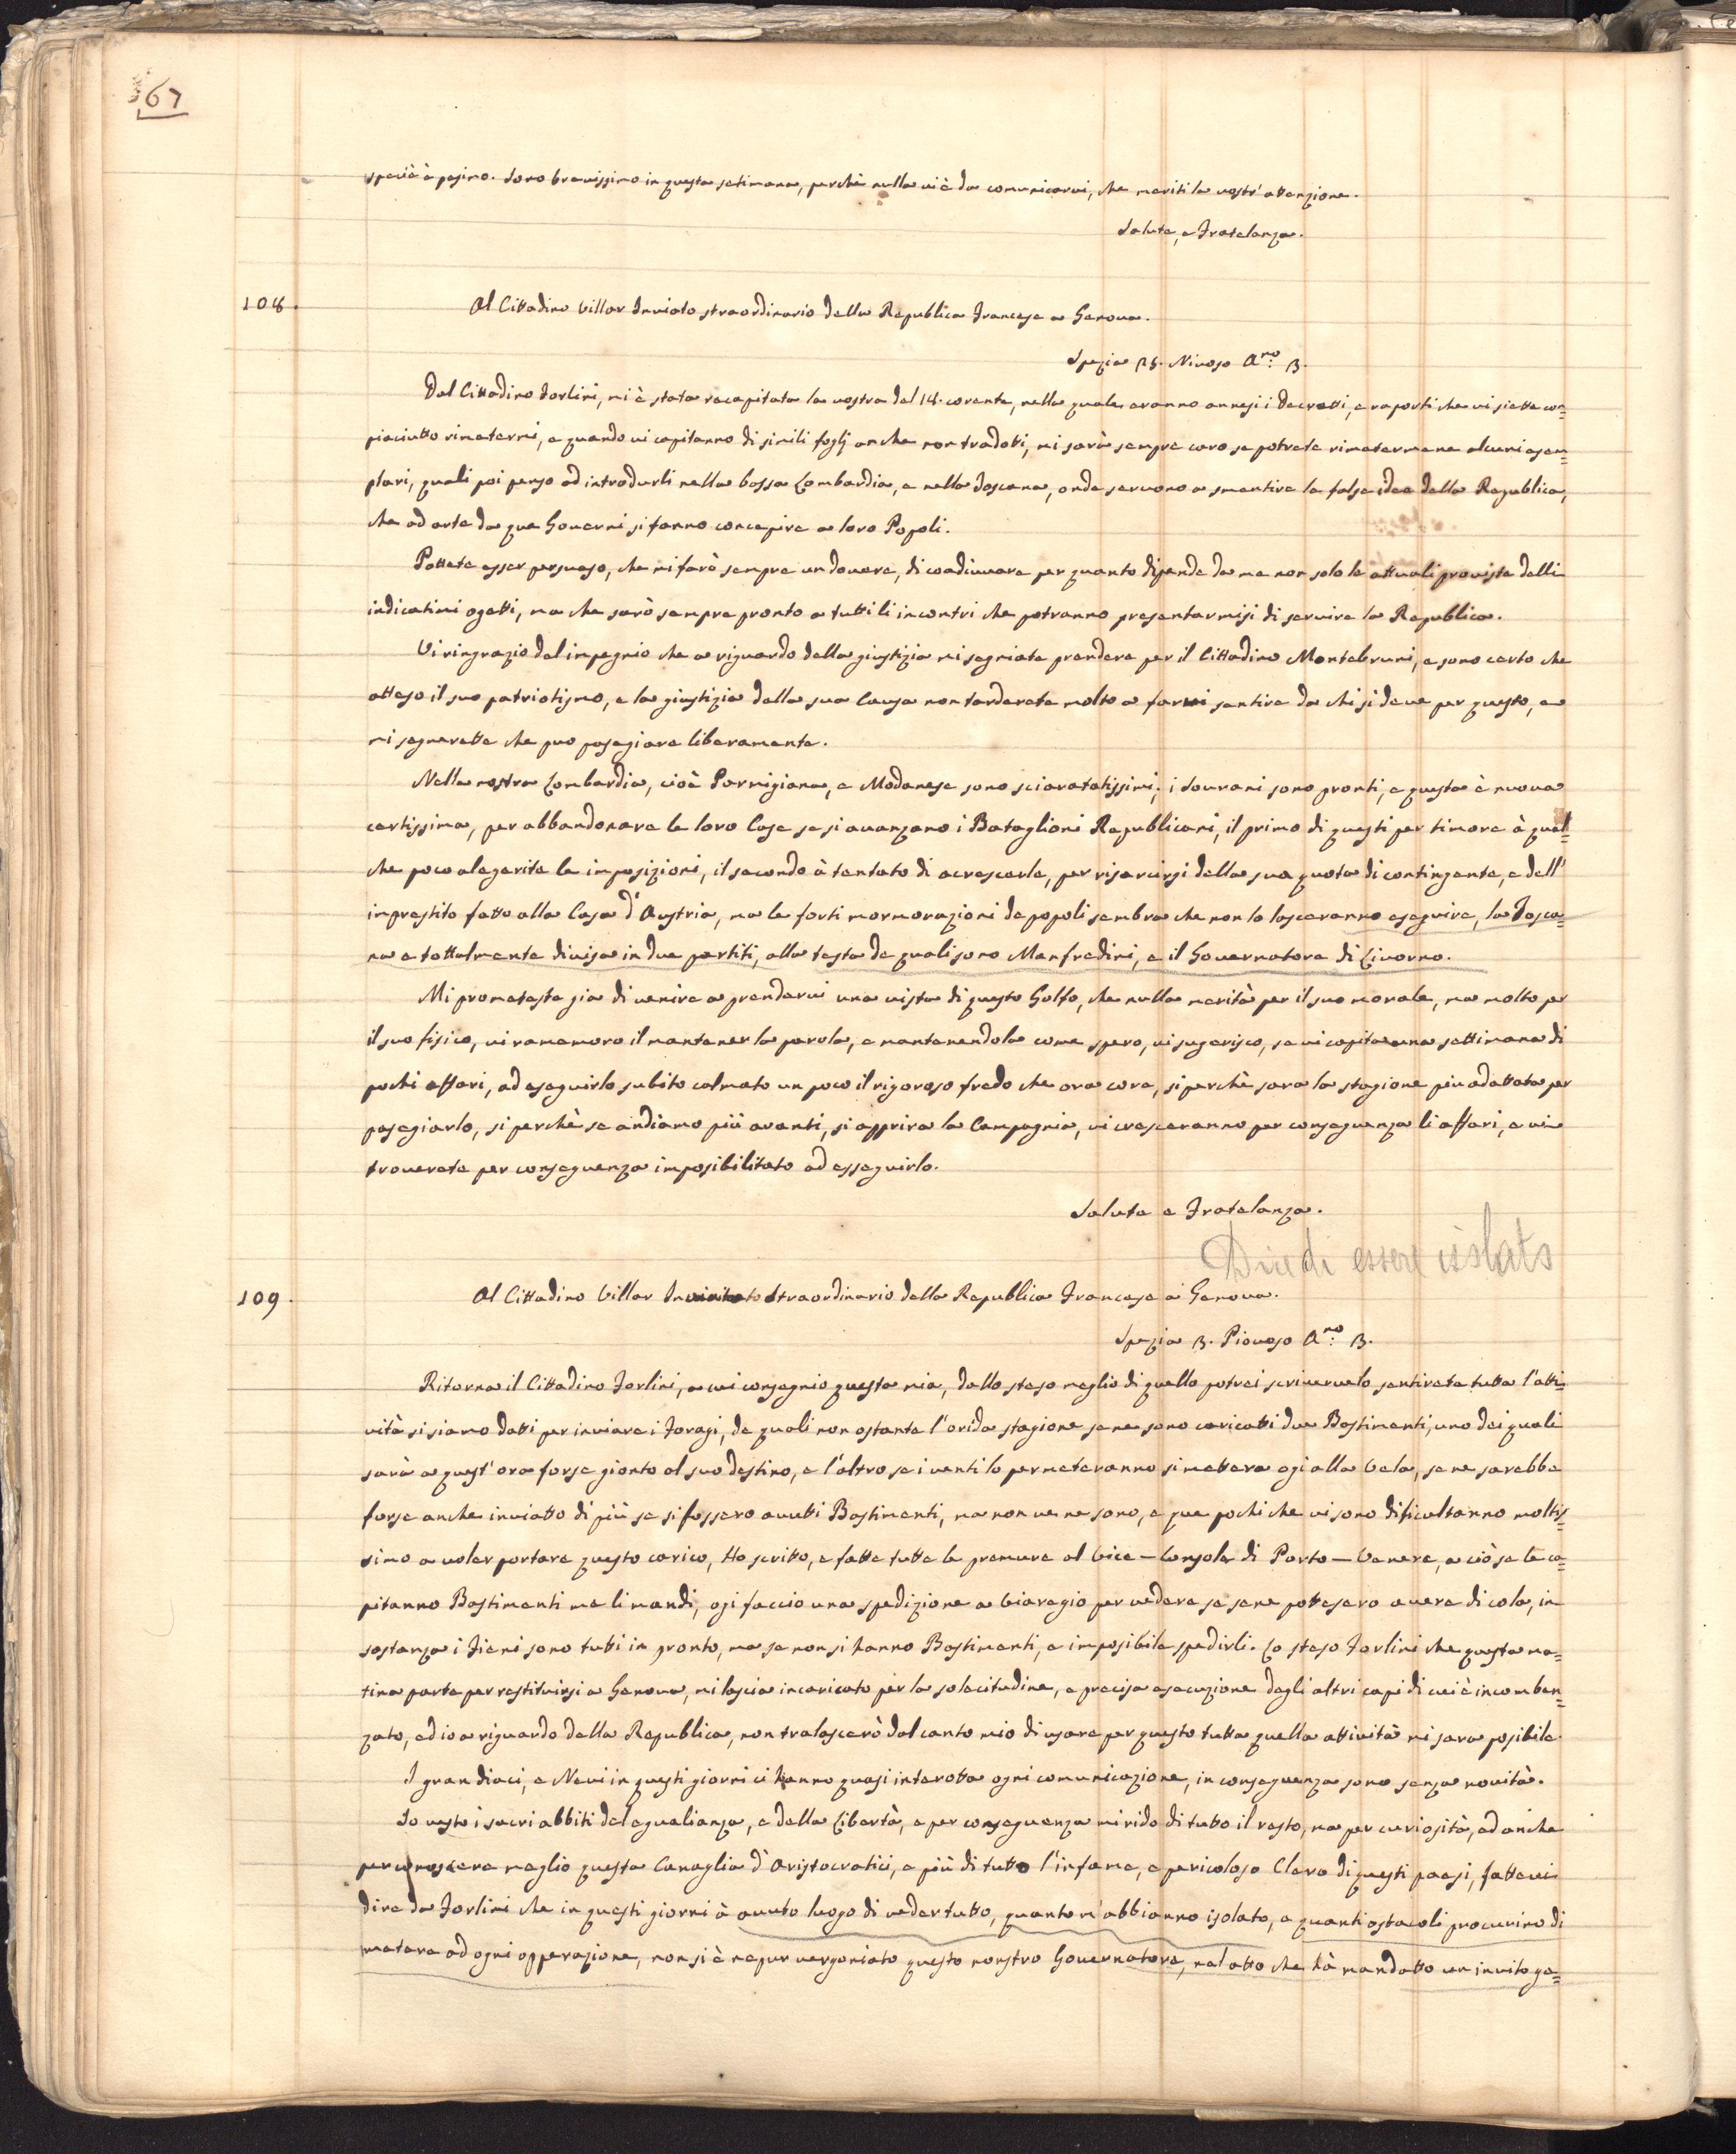 67
specië è pesimo. Sono brevissimo in questa setimana, perchè nulla vi è da comunicarvi, che meriti la vostr' attenzione.
Salute, e Fratelanza.
108.
Al Cittadino Villar Inviato straordinario della Republica Francese a Genova.
Spezia 25. Nivoso Ano: 3.
Dal Cittadino Forlini, mi è stata recapitata la vostra del 14. corente, nella quale eranno annessi i Decretti, e raporti che vi siette con=
piaciutto rimetermi, e quando vi capitanno di simili foglj anche non tradotti, mi sarà sempre caro se potrete rimetermene alcuni esem=
plari, quali poi penso ad introdurli nella bassa Lombardia, e nella Toscana, onde servono a smentire le false idee della Republica,
che ad arte da que Governi si fanno concepire a loro Popoli.
Pottete esser persuaso, che mi farò sempre un dovere, di coadiuvare per quanto dipende da me non solo le attuali proviste delli
indicatimi ogetti, ma che sarò sempre pronto a tutti li incontri che potranno presentarmisi di servire la Republica.
Vi ringrazio del impegnio che a riguardo della giustizia mi segniate prendere per il Cittadino Montebruni, e sono certo che
atteso il suo patriotismo, e la giustizia della sua Causa non tarderete molto a farvi sentire da chi si deve per questo, e
mi segnerette che puo pasegiare liberamente.
Nella nostra Lombardia, cioè Parmigiana, e Modanese sono sciaratatissimi; i Sovrani sono pronti, e questa è nuova
certissima, per abbandonare le loro Case se si avanzano i Bataglioni Republicani, il primo di questi per timore à qual=
che poco alegerite le imposizioni, il secondo à tentato di acrescerle, per risarcirsi della sua quota di contingente, e dell'
imprestito fatto alla Casa d'Austria, ma le forti mormorazioni de popoli sembra che non lo lasceranno eseguire, la Tosca=
na e tottalmente divisa in due partiti, alla testa de quali sono Manfredini, e il Governatore di Livorno.
Mi prometeste gia di venire a prendervi una vista di questo Golfo, che nulla merità per il suo morale, ma molto per
il suo fisico, vi ramemoro il mantener la parola, e mantenendola come spero, vi sugerisco, se vi capita una settimana di
pochi affari, ad eseguirlo subito calmato un poco il rigoroso fredo che ora core, si perchè sara la stagione più adattata per
pasegiarlo, si perchè se andiamo più avanti, si apprira la Campagnia, vi cresceranno per conseguenza li affari, e vi
troverete per conseguenza imposibilitato ad esseguirlo.
Salute e Fratelanza.
Dice di essere isolato
109.
Al Cittadino Villar Inviato Straordinario della Republica Francese a Genova.
Spezia 3. Piovoso Ano: 3.
Ritorna il Cittadino Forlini, a cui consegnio questa mia, dallo steso meglio di quello potrei scrivervelo sentirete tutta l'atti=
vità si siamo datti per inviare i Foragi, de quali non ostante l'orida stagione se ne sono caricatti due Bastimenti, uno dei quali
sarà a quest' ora forse gionto al suo destino, e l'altro se i venti lo permeteranno si mettera ogi alla Vela, se ne sarebbe
forse anche inviatto di più se si fossero avutti Bastimenti, ma non ve ne sono, e que pochi che vi sono dificultanno moltis=
simo a voler portare questo carico, Ho scritto, e fatte tutte le premure al Vice - Console di Porto - Venere, a ciò se le ca=
pitanno Bastimenti me li mandi, ogi faccio una spedizione a Viaregio per vedere se se ne pottesero avere di cola, in
sostanza i Fieni sono tutti in pronto, ma se non si hanno Bastimenti, e imposibile spedirli. Lo steso Forlini che questa ma=
tina parte per restituirsi a Genova, mi lascia incaricato per la solecitudine, e precisa esecuzione degli altri capi di cui è incomben=
zato, ed io a riguardo della Republica, non tralascerò dal canto mio di usare per questo tutta quella attività mi sara posibile.
I gran diaci, e Nevi in questi giorni ci hanno quasi interotta ogni comunicazione, in conseguenza sono senza novità.
Io vesto i sacri abbiti del egualianza, e della Libertà, e per conseguenza mi rido di tutto il resto, ma per curiosità, ed anche
per conoscere meglio questa Canaglia d'Aristocratici, e più di tutto l'infame, e pericoloso Clero di questi paesi, fattevi
dire da Forlini che in questi giorni à avuto luogo di veder tutto, quanto m'abbianno isolato, e quanti ostacoli procurino di
metere ad ogni opperazione, non si è nepur vergoniato questo monstro Governatore, nel atto che hà mandatto un invito ge=